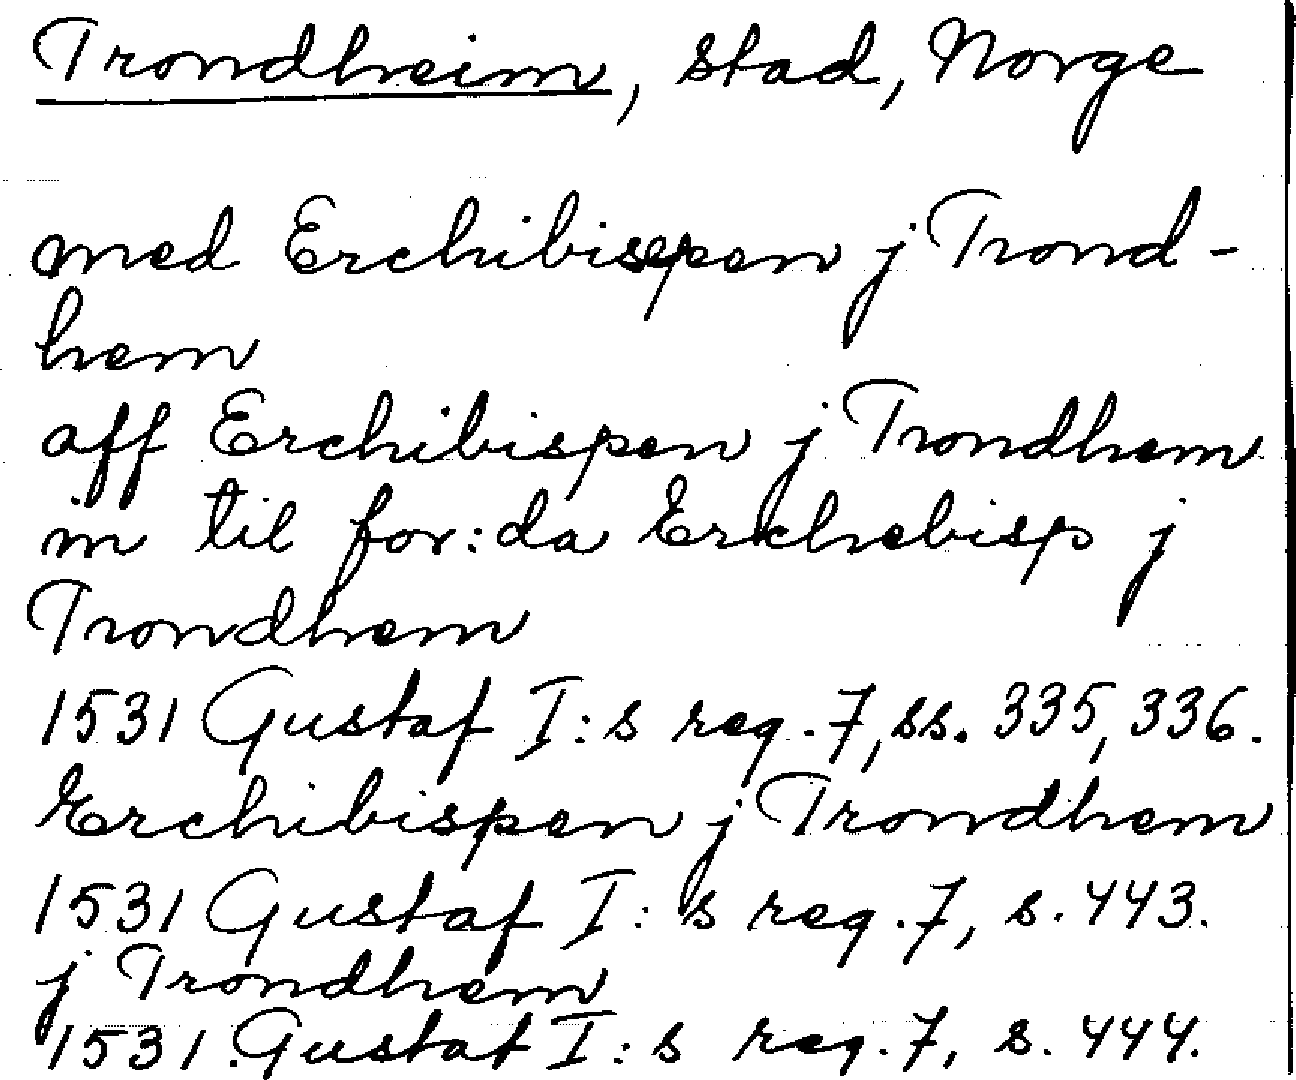 Trondheim, stad, Norge
med Erchibispen j Trond-
hem
aff Erchibispen j Trondhem
in til for:da Erchebisp j
Trondhem
1531 Gustaf I:s reg. 7, ss. 335, 336.
Erchibispen j Trondhem
1531 Gustaf I:s reg. 7, s. 443.
j Trondhem
1531. Gustaf I:s reg. 7, s. 444.